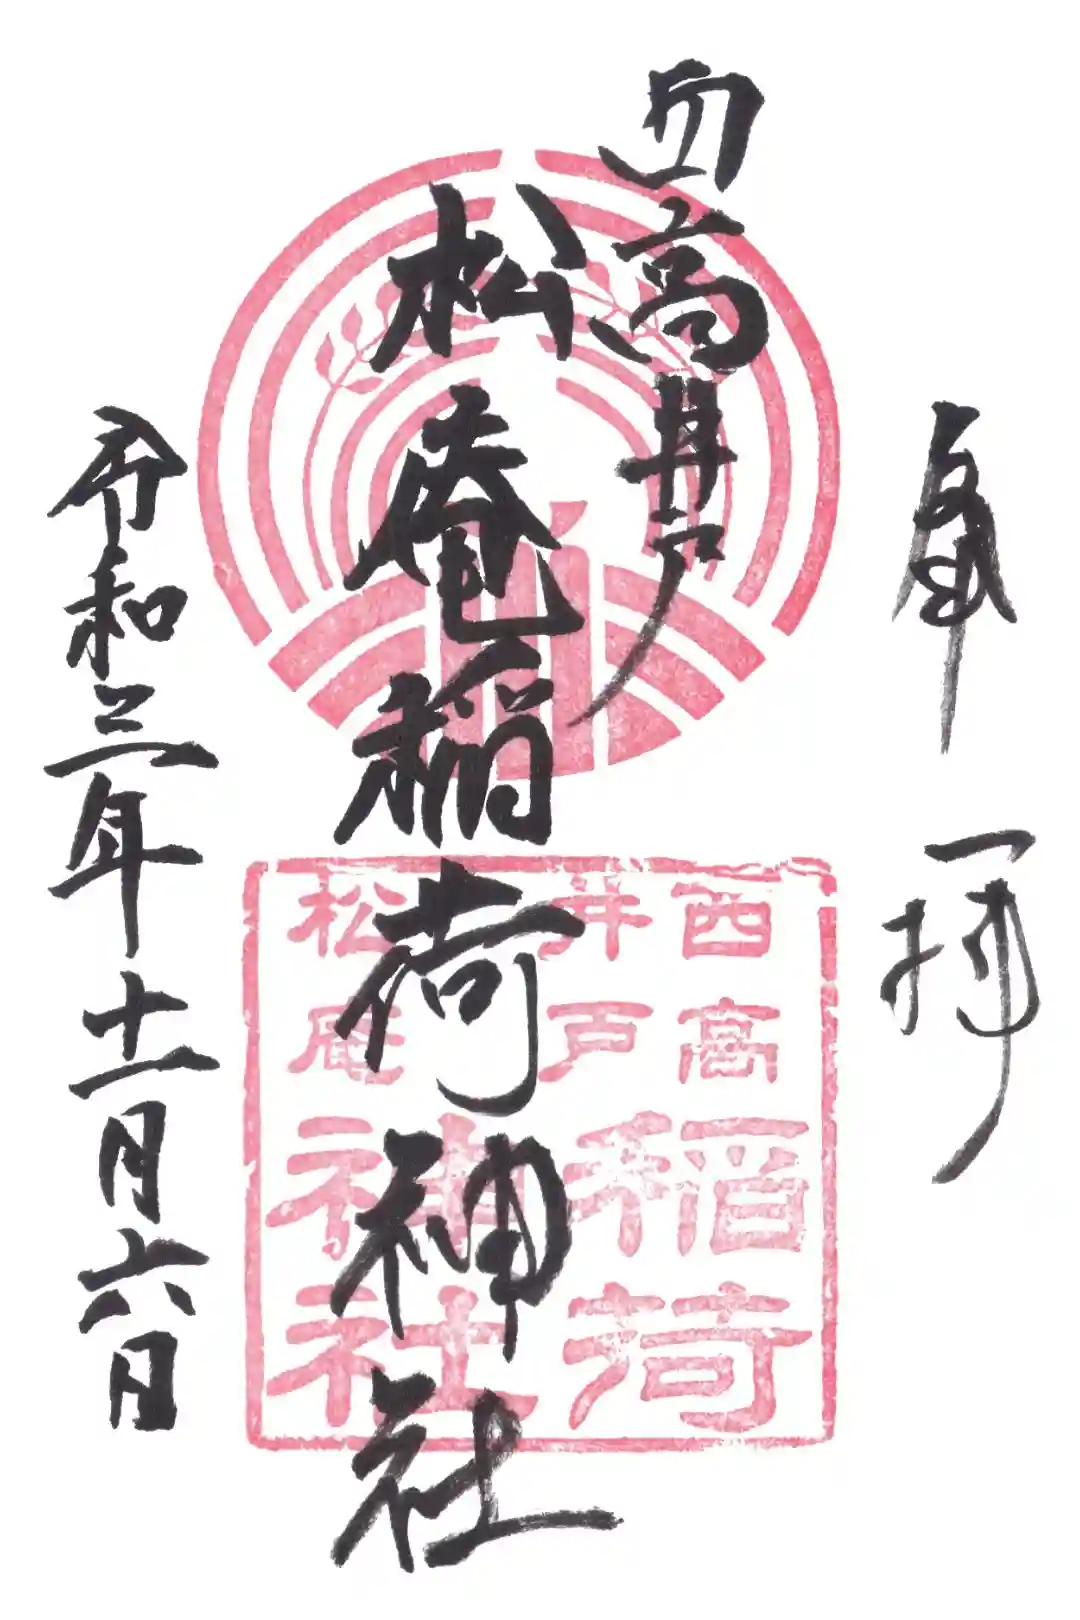 奉拝
西高井戸
松庵稲荷神社
令和三年十一月六日
西高
井戸
稲荷
松庵
神社